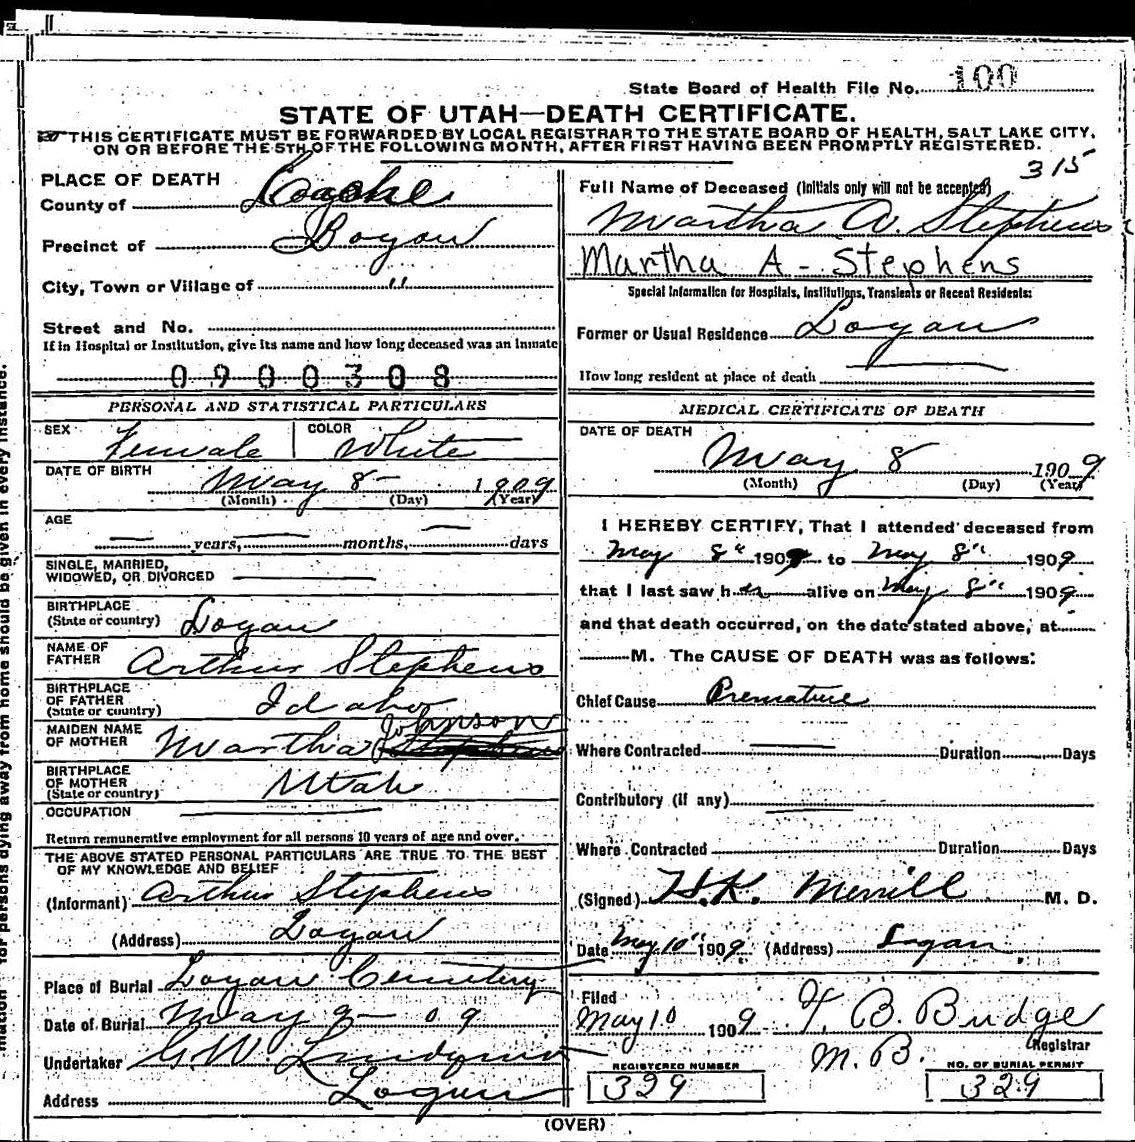 State Board of Health File No. 100
STATE OF UTAH—DEATH CERTIFICATE.
THIS CERTIFICATE MUST BE FORWARDED BY LOCAL REGISTRAR TO THE STATE BOARD OF HEALTH, SALT LAKE CITY,
ON OR BEFORE THE 5TH OF THE FOLLOWING MONTH, AFTER FIRST HAVING BEEN PROMPTLY REGISTERED.
315
PLACE OF DEATH
County of Cache
Precinct of Logan
City, Town or Village of "
Street and No.
If in Hospital or Institution, give its name and how long deceased was an inmate
0900308
PERSONAL AND STATISTICAL PARTICULARS
SEX Female COLOR White
DATE OF BIRTH May 8- 1909
(Month) (Day) (Year)
AGE
— years, — months, — days
SINGLE, MARRIED,
WIDOWED, OR DIVORCED
BIRTHPLACE
(State or country) Logan
NAME OF
FATHER Arthur Stephens
BIRTHPLACE
OF FATHER
(State or country) Idaho
MAIDEN NAME
OF MOTHER Martha Johnson
BIRTHPLACE
OF MOTHER
(State or country) Utah
OCCUPATION
Return remunerative employment for all persons 10 years of age and over.
THE ABOVE STATED PERSONAL PARTICULARS ARE TRUE TO THE BEST
OF MY KNOWLEDGE AND BELIEF
(Informant) Arthur Stephens
(Address) Logan
Place of Burial Logan Cemetery
Date of Burial May 9 - 09
Undertaker G.W. Lindquist
Address Logan
Full Name of Deceased (Initials only will not be accepted)
Martha A. Stephens
Martha A - Stephens
Special Information for Hospitals, Institutions, Transients or Recent Residents:
Former or Usual Residence Logan
How long resident at place of death
MEDICAL CERTIFICATE OF DEATH
DATE OF DEATH
May 8 1909
(Month) (Day) (Year)
I HEREBY CERTIFY, That I attended deceased from
May 8" 1909 to May 8" 1909
that I last saw her alive on May 8" 1909
and that death occurred, on the date stated above, at
M. The CAUSE OF DEATH was as follows:
Chief Cause Premature
Where Contracted — Duration Days
Contributory (if any)
Where Contracted Duration Days
(Signed) H.K. Merrill M. D.
Date May 10" 1909 (Address) Logan
Filed
May 10 1909 T. B. Budge
Registrar
M.B.
REGISTERED NUMBER
329
NO. OF BURIAL PERMIT
329
(OVER)
for persons dying away from home should be given in every instance.